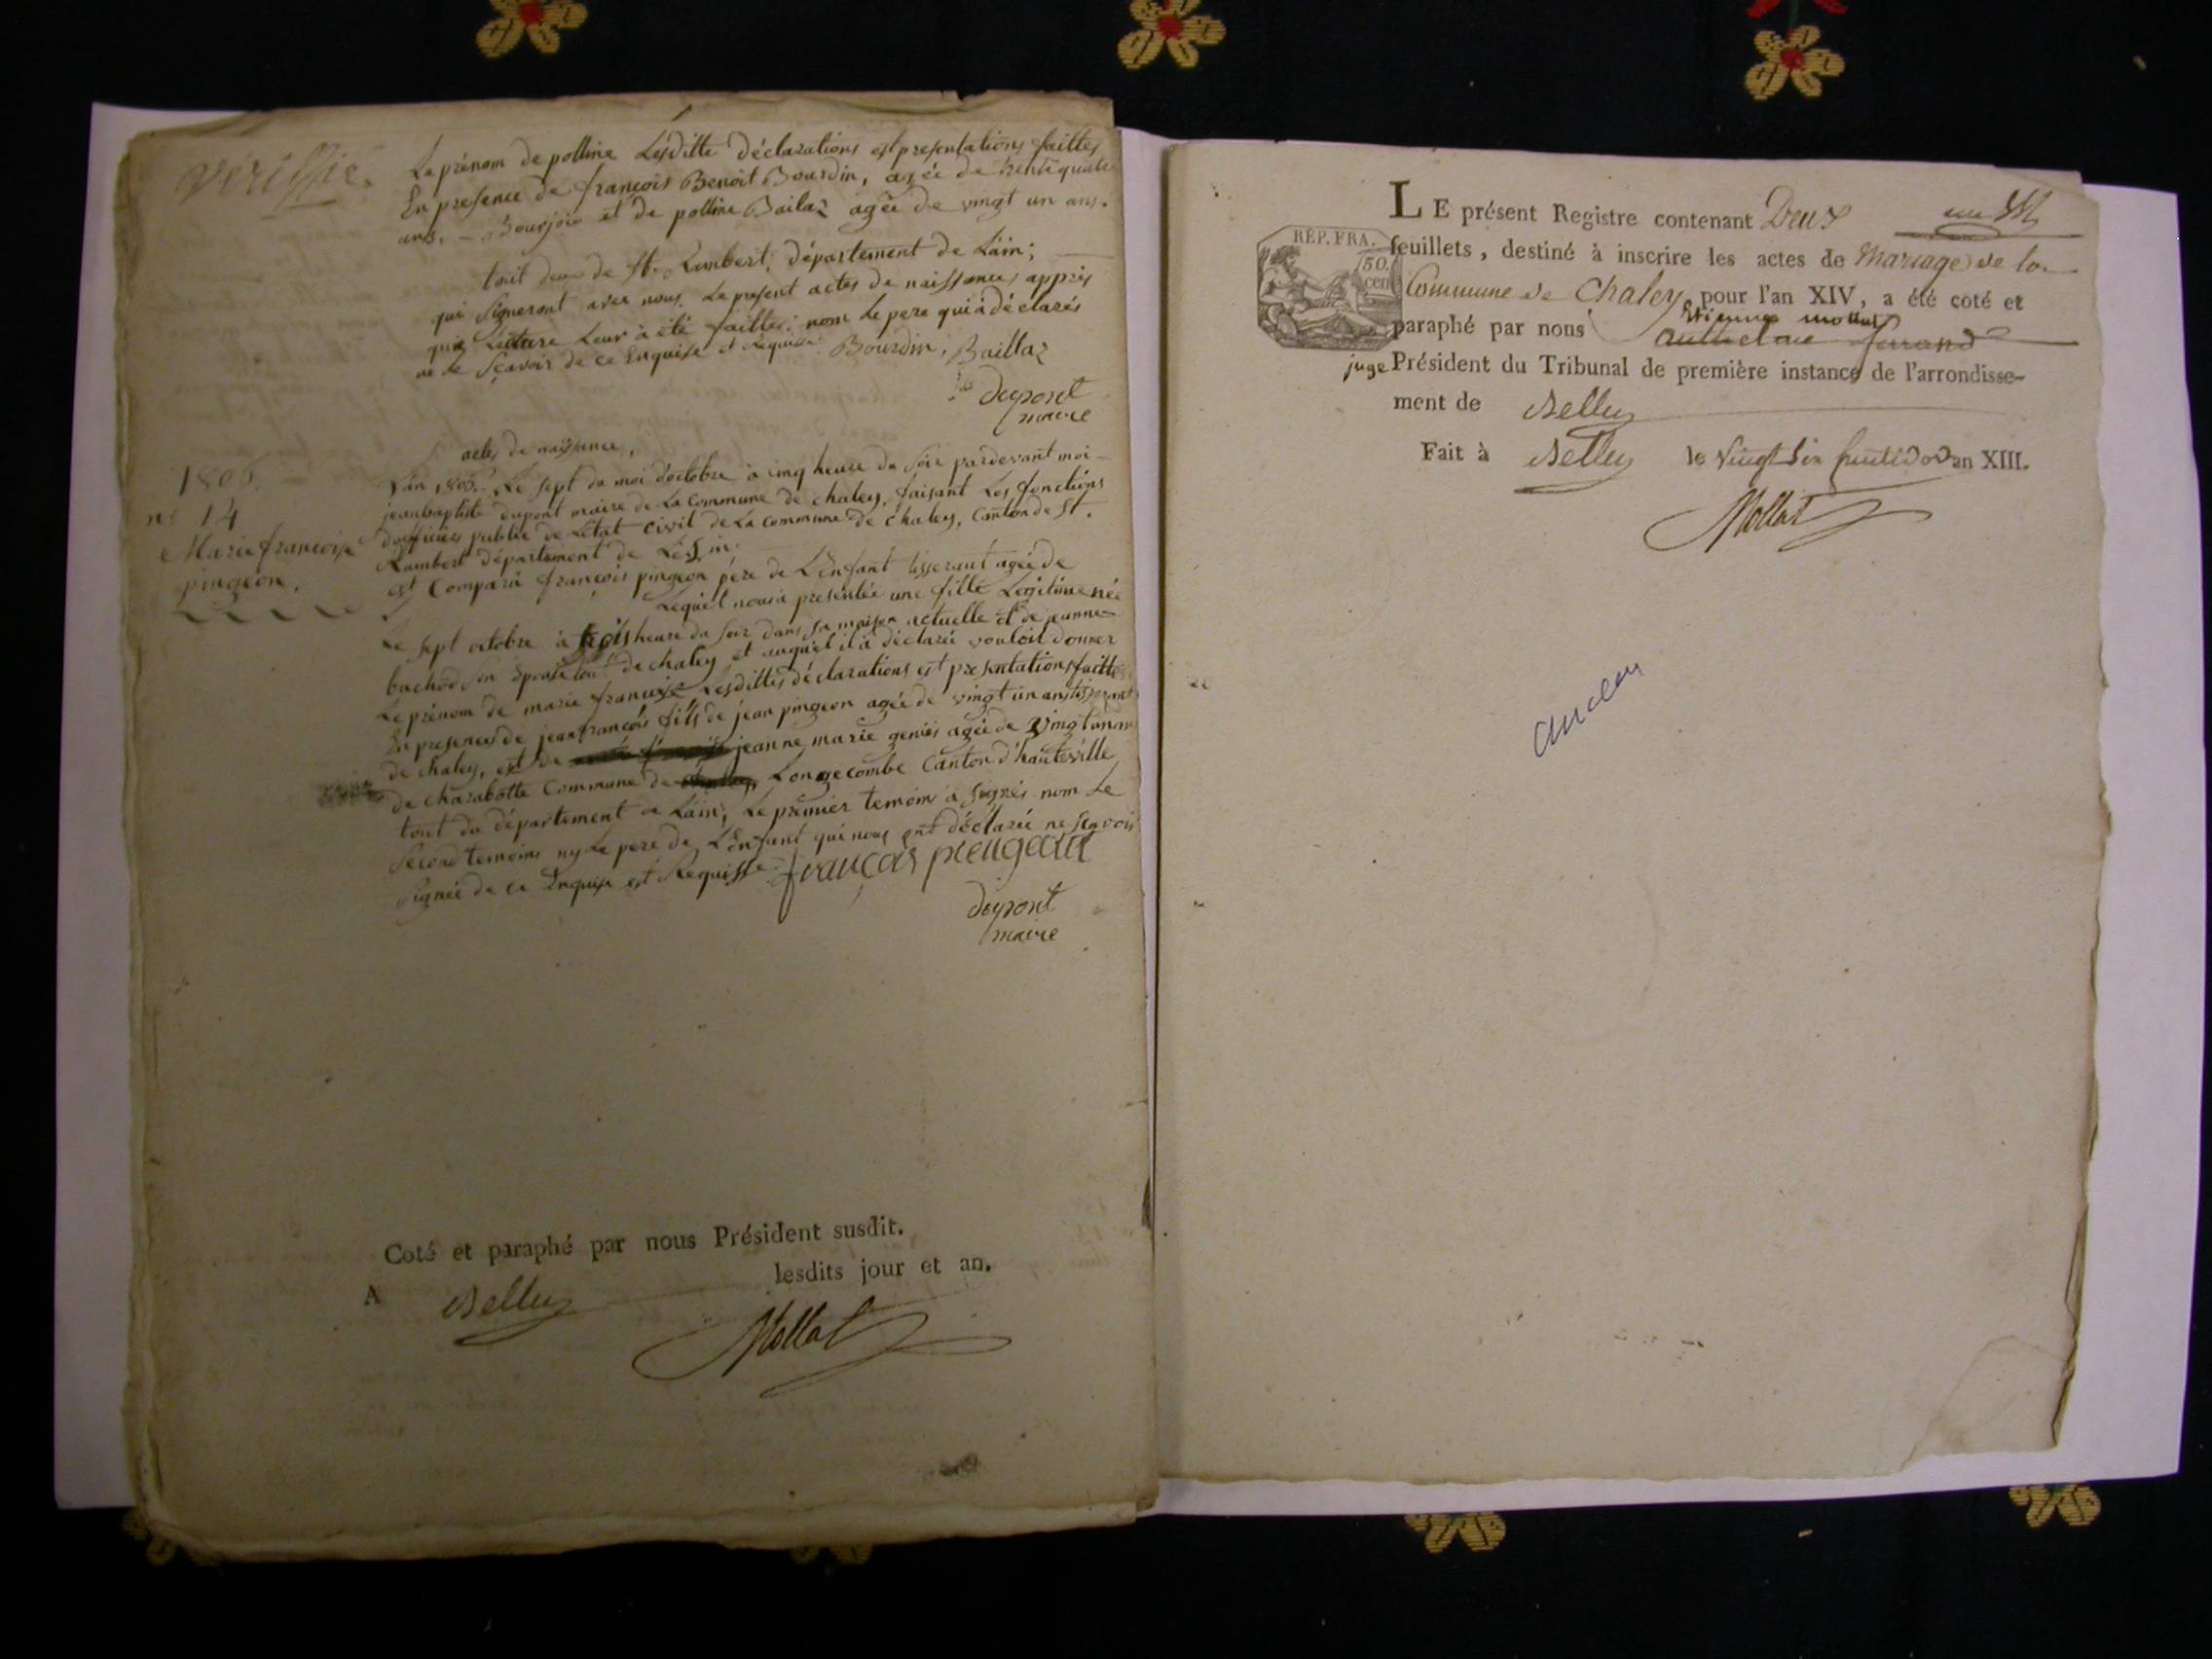 vériffié.
Le prénom de polline Lesditte déclarations est presentations faittes
En presence de françois Benoit Bourdin, agée de trente quatre
ans. — Bourjois et de polline Bailaz agée de vingt un ans.
tout deux de St. Rambert, département de Lain;
qui Signeront avec nous. Le present actes de naissances apprès
que Lecture Leur à été faittes; nom le pere qui à déclarés
ne le Sçavoir de ce Enquise et Requise. Bourdin, Baillaz
dupont
maire
1805.
nº 14
Marie francoise
pingeon.
actes de naissance,
L'an 1805. Le sept du moi d'octobre à cinq heure du Soir pardevant moi
jeanbaptiste dupont maire de La Commune de chaley, faisant Les fonctions
d'officiers public de L'Etat Civil de La Commune de chaley, Canton de St.
Rambert département de L'Ain.
est Comparu françois pingeon père de L'Enfant tisserant agée de
Lequel nous à presentée une fille Legitime née
Le sept octobre à trois heure du Soir dans sa maison actuelle et de jeanne
buchod Son Epouse tout de chaley et auquel il à déclaré vouloir donner
Le prénom de marie françoise Lesdittes déclarations est presentations faittes
En presences de jean françois fils de jean pingeon agée de vingt un ans tisserant
de chaley, est de jeanne marie genies agée de vingt un ans
de charabotte Commune de Longecombe Canton d'hauteville
tout du département de Lain; Le premier temoin à Signés nom Le
Second temoins ny Le pere de L'Enfant qui nous ont déclarée ne Sçavoir
Signée de ce Enquise est Requisse. françois piengeon
dupont
maire
Coté et paraphé par nous Président susdit.
A Belley lesdits jour et an.
Mollat
LE présent Registre contenant Deux
feuillets, destiné à inscrire les actes de Mariage de la
Commune de Chaley pour l'an XIV, a été coté et
Etienne mollat
paraphé par nous Anthelme ferrand
juge Président du Tribunal de première instance de l'arrondisse-
ment de Belley
Fait à Belley le Vingt Six fructidor an XIII.
Mollat
RÉP. FRA.
50.
cen